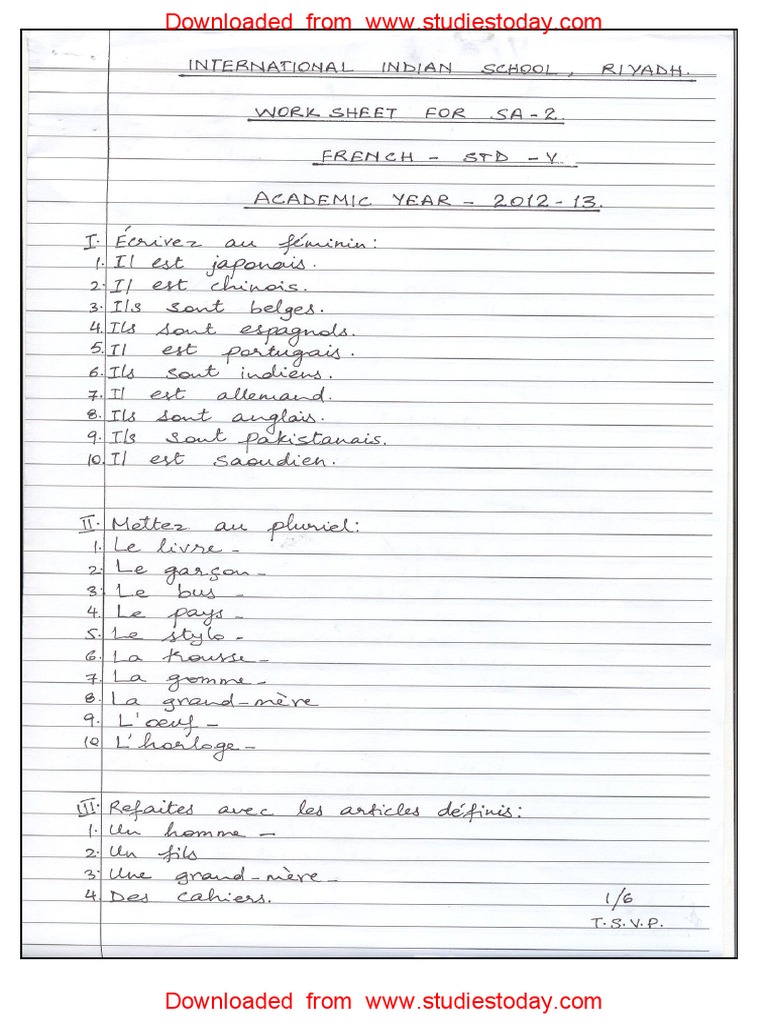 Downloaded from www.studiestoday.com
INTERNATIONAL INDIAN SCHOOL, RIYADH.
WORK SHEET FOR SA-2.
FRENCH - STD - V.
ACADEMIC YEAR - 2012-13.
I. Écrivez au féminin:
1. Il est japonais.
2. Il est chinois.
3. Ils sont belges.
4. Ils sont espagnols.
5. Il est portugais.
6. Ils sont indiens.
7. Il est allemand.
8. Ils sont anglais.
9. Ils sont pakistanais.
10. Il est saoudien.
II. Mettez au pluriel:
1. Le livre -
2. Le garçon -
3. Le bus -
4. Le pays -
5. Le stylo -
6. La trousse -
7. La gomme -
8. La grand-mère
9. L'oeuf -
10 L'horloge -
III. Refaites avec les articles définis:
1. Un homme -
2. Un fils
3. Une grand-mère -
4. Des cahiers.
1/6
T.S.V.P.
Downloaded from www.studiestoday.com